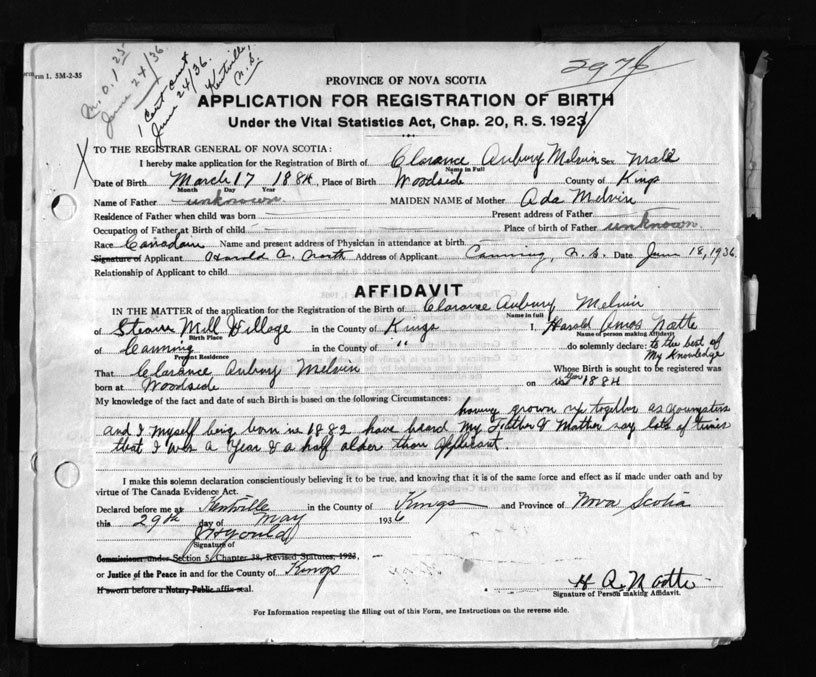 Form 1. 5M-2-35
M.O. 1 25
June 24/36
1 Cert sent
June 24/36.
Kentville,
N.S.
2976
PROVINCE OF NOVA SCOTIA
APPLICATION FOR REGISTRATION OF BIRTH
Under the Vital Statistics Act, Chap. 20, R. S. 1923
X
TO THE REGISTRAR GENERAL OF NOVA SCOTIA:
I hereby make application for the Registration of Birth of Clarance Aubury Melvin Sex Male
Name in Full
Date of Birth March 17 1884, Place of Birth Woodside County of Kings
Month Day Year
Name of Father unknown MAIDEN NAME of Mother Ada Melvin
Residence of Father when child was born Present address of Father
Occupation of Father at Birth of child Place of birth of Father unknown.
Race Canadian Name and present address of Physician in attendance at birth
Signature of Applicant Harold A. North Address of Applicant Canning, N.S. Date June 18, 1936.
Relationship of Applicant to child
AFFIDAVIT
IN THE MATTER of the application for the Registration of the Birth of Clarance Aubury Melvin
Name in full
of Steam Mill Village in the County of Kings I, Harold Amos
Birth Place Name of person making Affidavit
of Canning in the County of " do solemnly declare: to the best of
Present Residence My Knowledge
That Clarance Aubury Melvin Whose Birth is sought to be registered was
born at Woodside on 1884
My knowledge of the fact and date of such Birth is based on the following Circumstances:
having grown up together as youngsters
and I myself being born in 1882 have heard My Father & Mother say lots of times
that I was a Year & a half older than Applicant.
I make this solemn declaration conscientiously believing it to be true, and knowing that it is of the same force and effect as if made under oath and by
virtue of The Canada Evidence Act.
Declared before me at Kentville in the County of Kings and Province of Nova Scotia
this 29th day of May 1936
Signature of
Commissioner under Section 5, Chapter 38, Revised Statutes, 1923,
or Justice of the Peace in and for the County of Kings
If sworn before a Notary Public affix seal.
H A
Signature of Person making Affidavit.
For Information respecting the filling out of this Form, see Instructions on the reverse side.